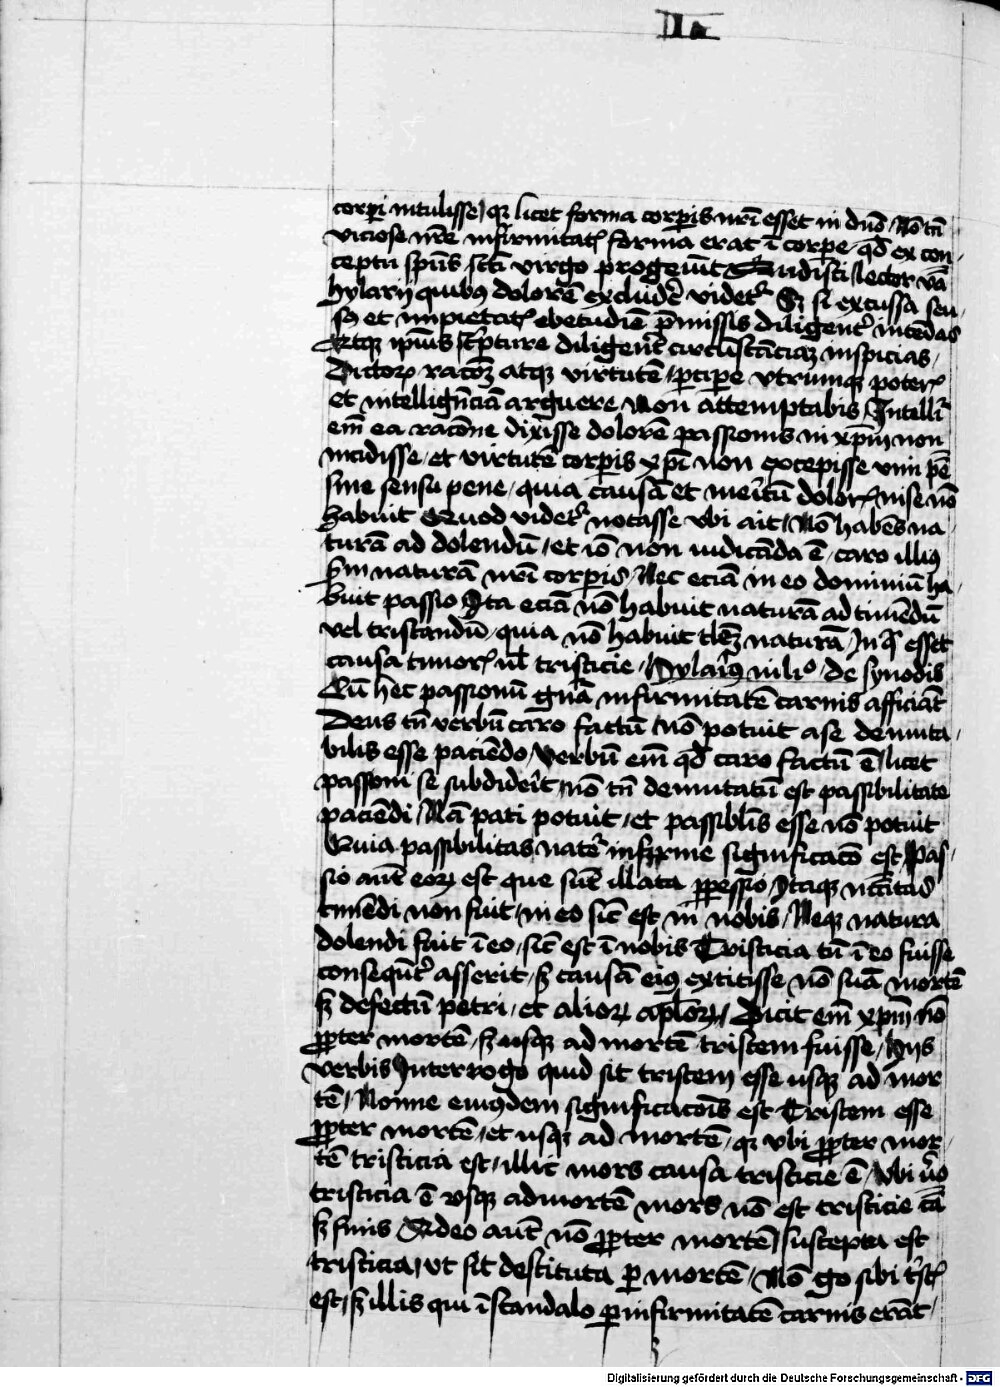 corpri intulisse / qꝛ licet forma corpis nr̄i esset in dn̄o / Nō tn̄
viciose nr̄e infirmitatꝭ forma erat ī corpe / qd̄ ex con
ceptu sp̄us sc̄ti virgo progenuit Audisti lector v̄ba
hylarij quibꝰ dolorē excludē videtꝰ Sꝫ si excussa sen
sꝰ et impietatꝭ ebetudīe p̄missis diligentꝰ intēdas
Atqꝫ ipīus sc̄pture diligentꝰ circūstācias inspicias /
Dictoꝝ racōꝫ atqꝫ virtutē / ꝑcipe vtrumqꝫ poterꝭ
et intellign̄ciā arguere Non attemptabis / Intelli
em̄ ea racōne dixisse dolorē passionis in xp̄m non
incidisse / et virtutē corpis xp̄i non excepisse vim pē
sine sensu pene / quia causā et meritū dolorꝭ nise nō
habuit Quod videtꝰ notasse vbi ait / Nō habēs na
turā ad dolendū / et iō non iudicāda ē / caro illiꝰ
sm̄ naturā nr̄i corpis / Nec eciā in eo dominiū ha
buit passio Ita eciā nō habuit naturā ad timēdū
vel tristandū / quia nō habuit tlēꝫ naturā / in qͣ esset
causa timorꝭ ul̄ tristicie / Hylariꝰ in li° / de synodis
Cū hec passionū gn̄a infirmitatē carnis afficiāt
Deus tn̄ verbū caro factū nō potuit a se demuta
bilis esse paciēdo / Verbū em̄ qd̄ caro factū ē / licet
passioni se subdiderit / nō tn̄ demutatū est passibilitate
paciēdi / Nā pati potuit / et passibl̄is esse nō potuit
Quia passibilitas natꝰe infirme significacō est / Pas
sio aut̄ eoꝝ est que sūt illata ꝑpessio / Itaqꝫ nc̄citas
timēdi non fuit / in eo sic̄ est in nobis / Neqꝫ natura
dolendi fuit ī eo / sic̄ est ī nobis Tristicia tn̄ ī eo fuisse
consequn̄tꝰ asserit / sꝫ causā eiꝰ extitisse nō suā mortē
sꝫ defectū petri / et alioꝝ apl̄oꝝ / Dicit em̄ xp̄m nō
ꝓpter mortē / sꝫ usqꝫ ad mortē tristem fuisse / Hijs
verbis Interrogo quid sit tristem esse usqꝫ ad mor
tē / Nonne eiusdem significacōis est Tristem esse
ꝓpter mortē / et usqꝫ ad mortē / qꝛ vbi ꝓpter mor
tē tristicia est / illic mors causa tristicie ē / Vbi v̄o
tristicia ē vsqꝫ ad mortē mors nō est tristicie cā
sꝫ finis Adeo aut̄ nō ꝓpter mortē / suscepta est
tristicia / ut sit destituta ꝑ mortē / Nō g̊ sibi t̄stꝭ
est / sꝫ illis qui ī scandalo ꝑ infirmitatē carnis erāt /
Digitalisierung gefördert durch die Deutsche Forschungsgemeinschaft - DFG